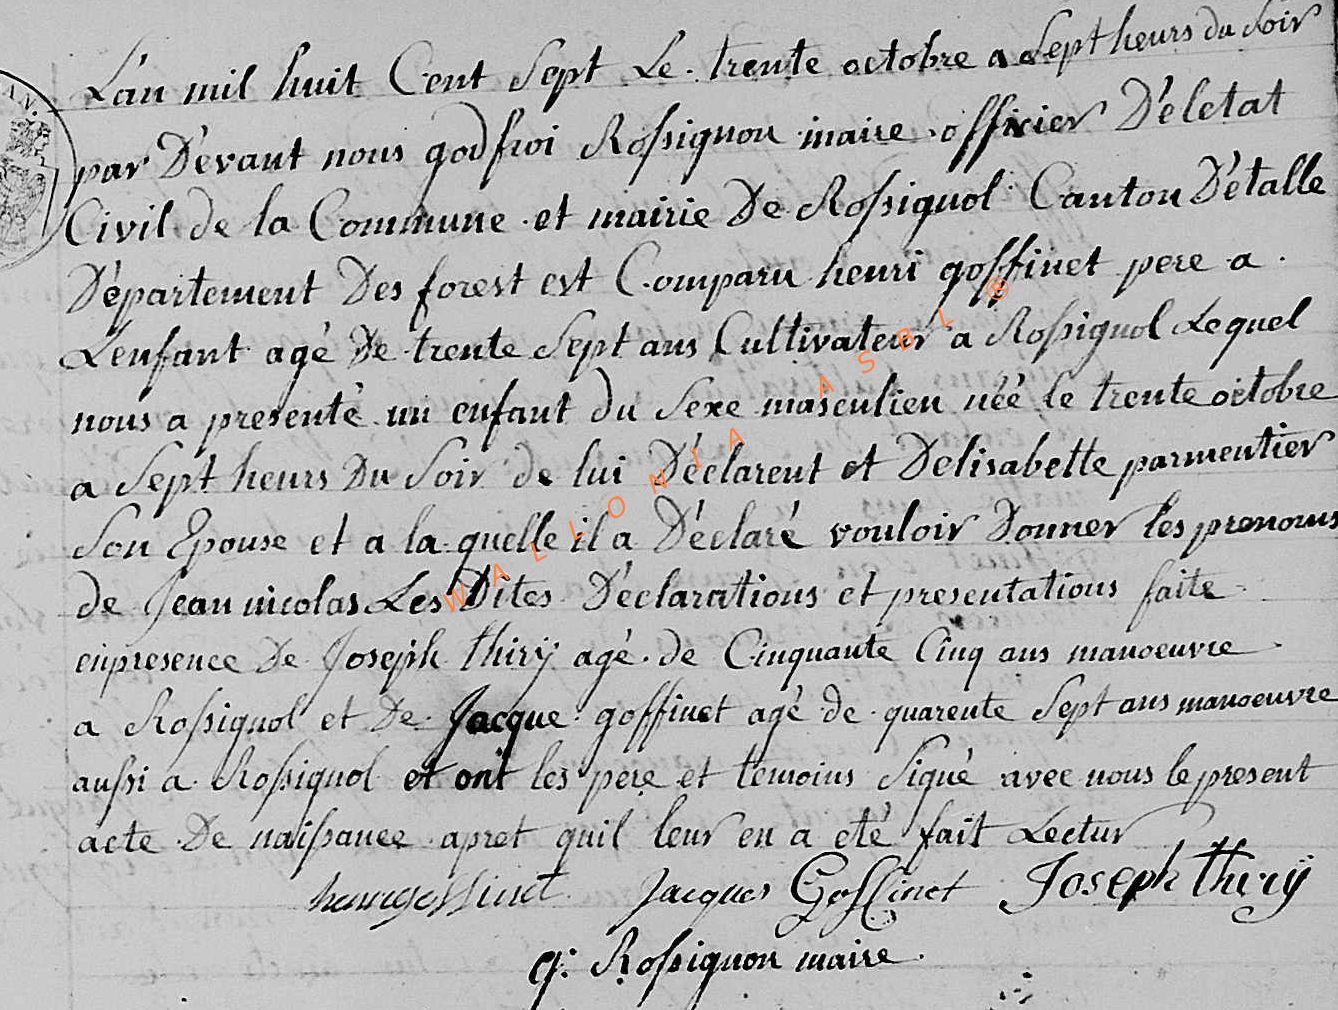 L'an mil huit Cent Sept Le trente octobre a Sept heurs du Soir
par Dévant nous godfroi Rossignon maire officier D'életat
Civil de la Commune et mairie De Rossignol Canton D'étalle
Département Des forest est Comparu henri goffinet pere a
L'enfant agé De trente Sept ans Cultivateur a Rossignol Lequel
nous a presenté un enfant du Sexe masculien néé le trente octobre
a Sept heurs Du Soir de lui Déclarent et Delisabette parmentier
Son Epouse et a la quelle il a Déclaré vouloir Donner les prenoms
de Jean nicolas Les Dites Déclarations et presentations faite
enpresence De Joseph thirÿ agé de Cinquante Cinq ans manoeuvre
a Rossignol et De Jacque goffinet agé de quarente Sept ans manoeuvre
aussi a Rossignol et ont les pere et temoins Signé avec nous le present
acte De naissance apret quil leur en a eté fait Lectur
henri goffinet Jacques Goffinet Joseph thirÿ
g: Rossignon maire
WALLONIA ASBL ®